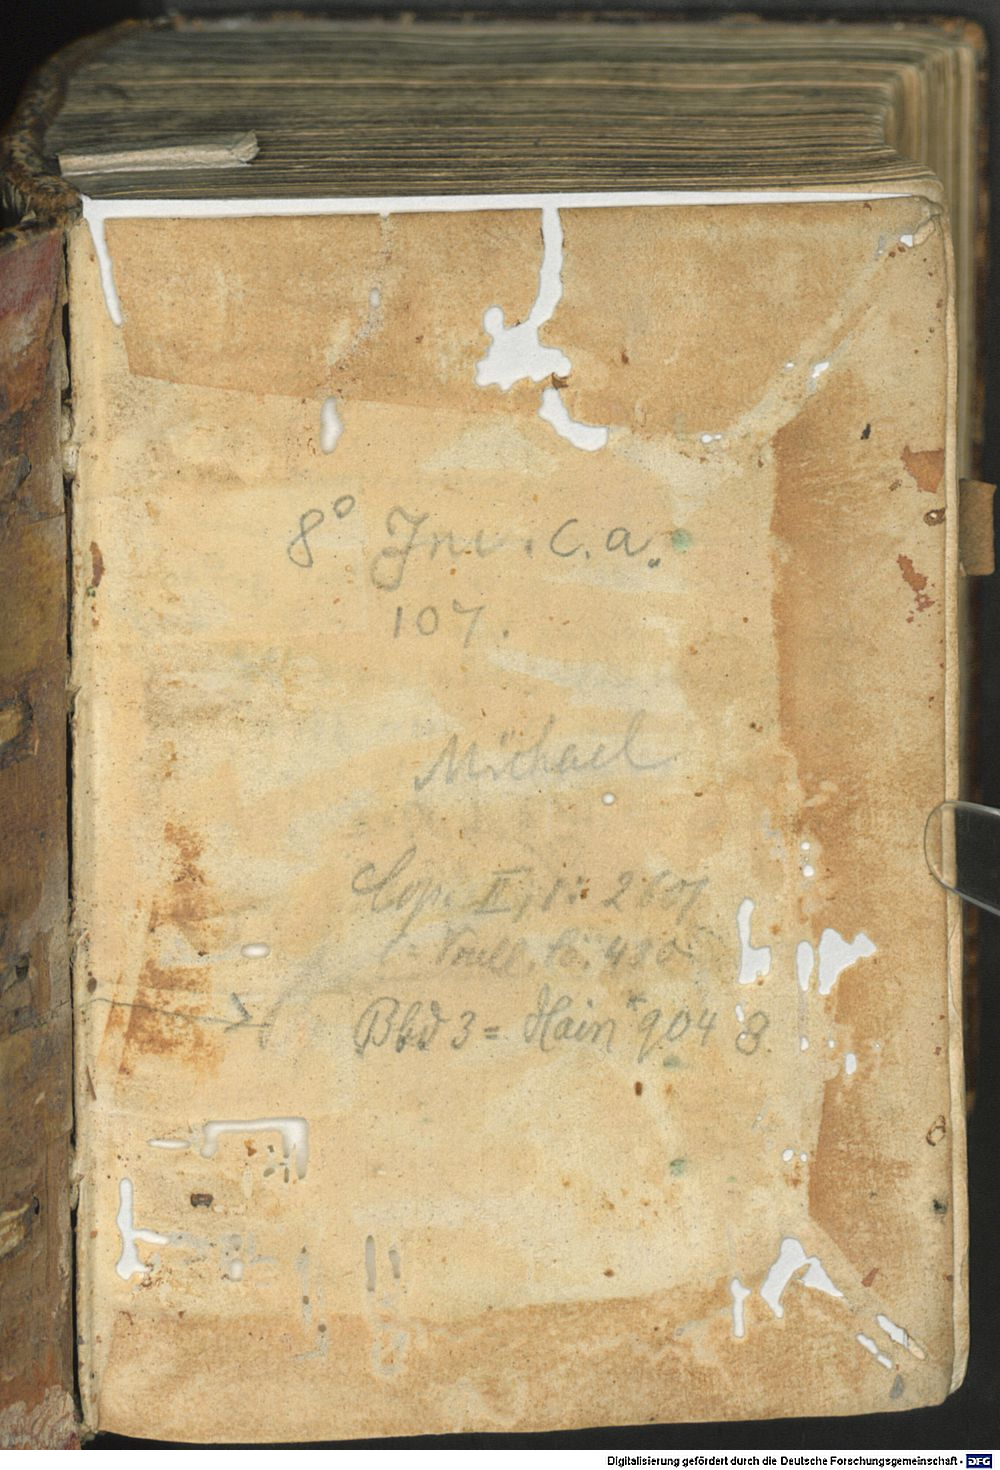 8° Inc. c. a.
107.
Michael
Cop. II, 1: 2607
= Voull. B: 480
Bbd 3 = Hain *904 8.
Digitalisierung gefördert durch die Deutsche Forschungsgemeinschaft - DFG